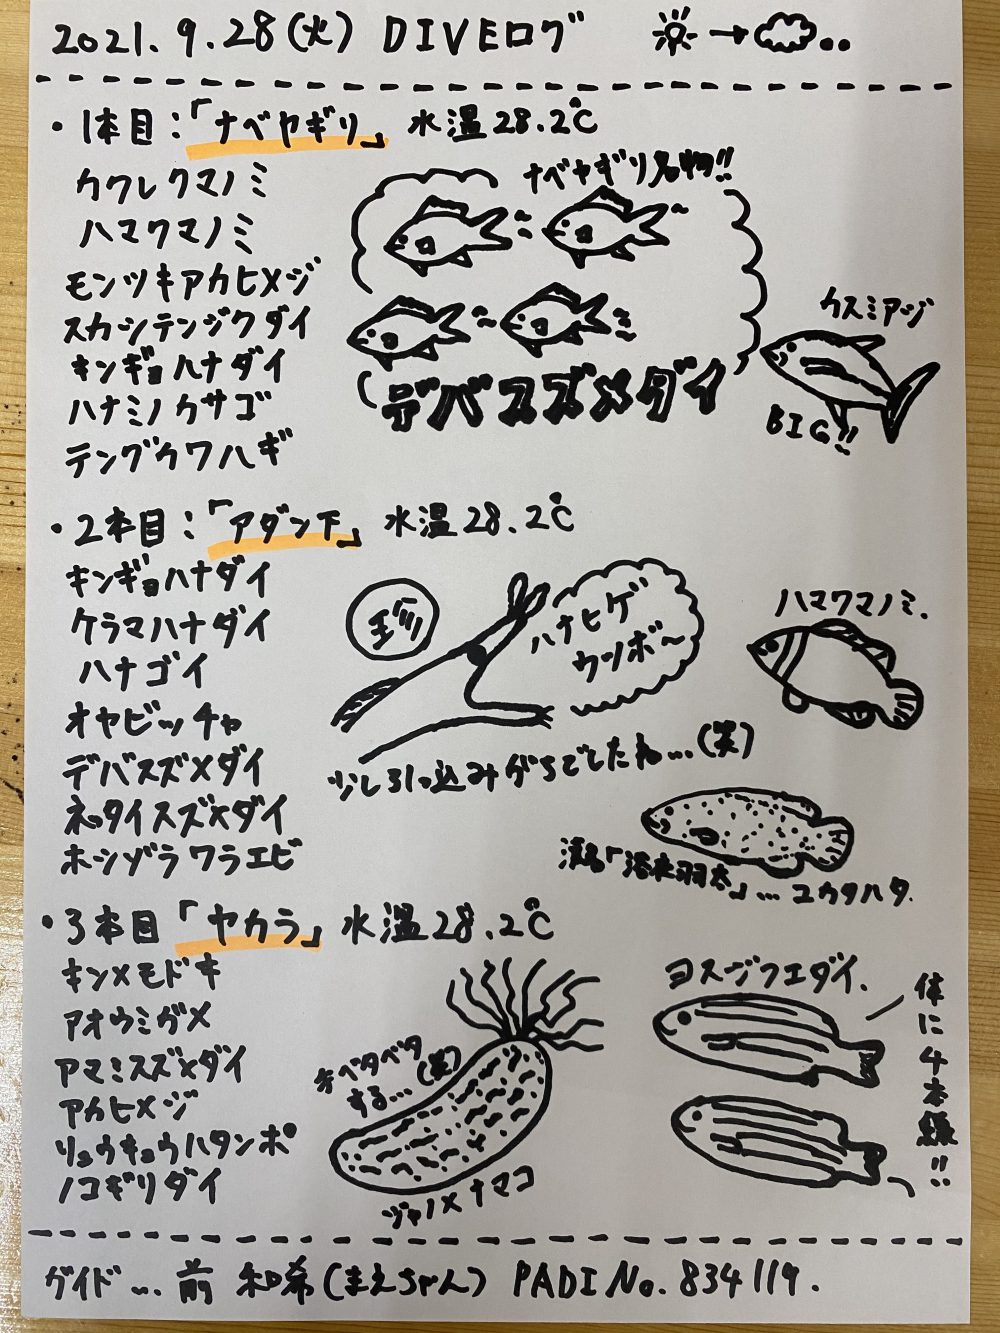 2021.9.28(火) DIVEログ
・1本目:「ナベヤギリ」 水温28.2℃
カクレクマノミ
ハマクマノミ
モンツキアカヒメジ
スカシテンジクダイ
キンギョハナダイ
ハナミノカサゴ
テングカワハギ
ナベヤギリ名物!!
デバスズメダイ
カスミアジ
BIG!!
・2本目:「アダン下」 水温28.2℃
キンギョハナダイ
ケラマハナダイ
ハナゴイ
オヤビッチャ
デバスズメダイ
ネッタイスズメダイ
ホシゾラワラエビ
ハナヒゲ
ウツボ〜
少し引っ込みがちでしたね…(笑)
ハマクマノミ.
漢名「浴衣羽太」… ユカタハタ.
・3本目「ヤカラ」 水温28.2℃
キンメモドキ
アオウミガメ
アマミスズメダイ
アカヒメジ
リュウキュウハタンポ
ノコギリダイ
ベタベタ
する…(笑)
ジャノメナマコ
ヨスジフエダイ.
体に4本線!!
ガイド… 前 和希(まえちゃん) PADI No. 834119.